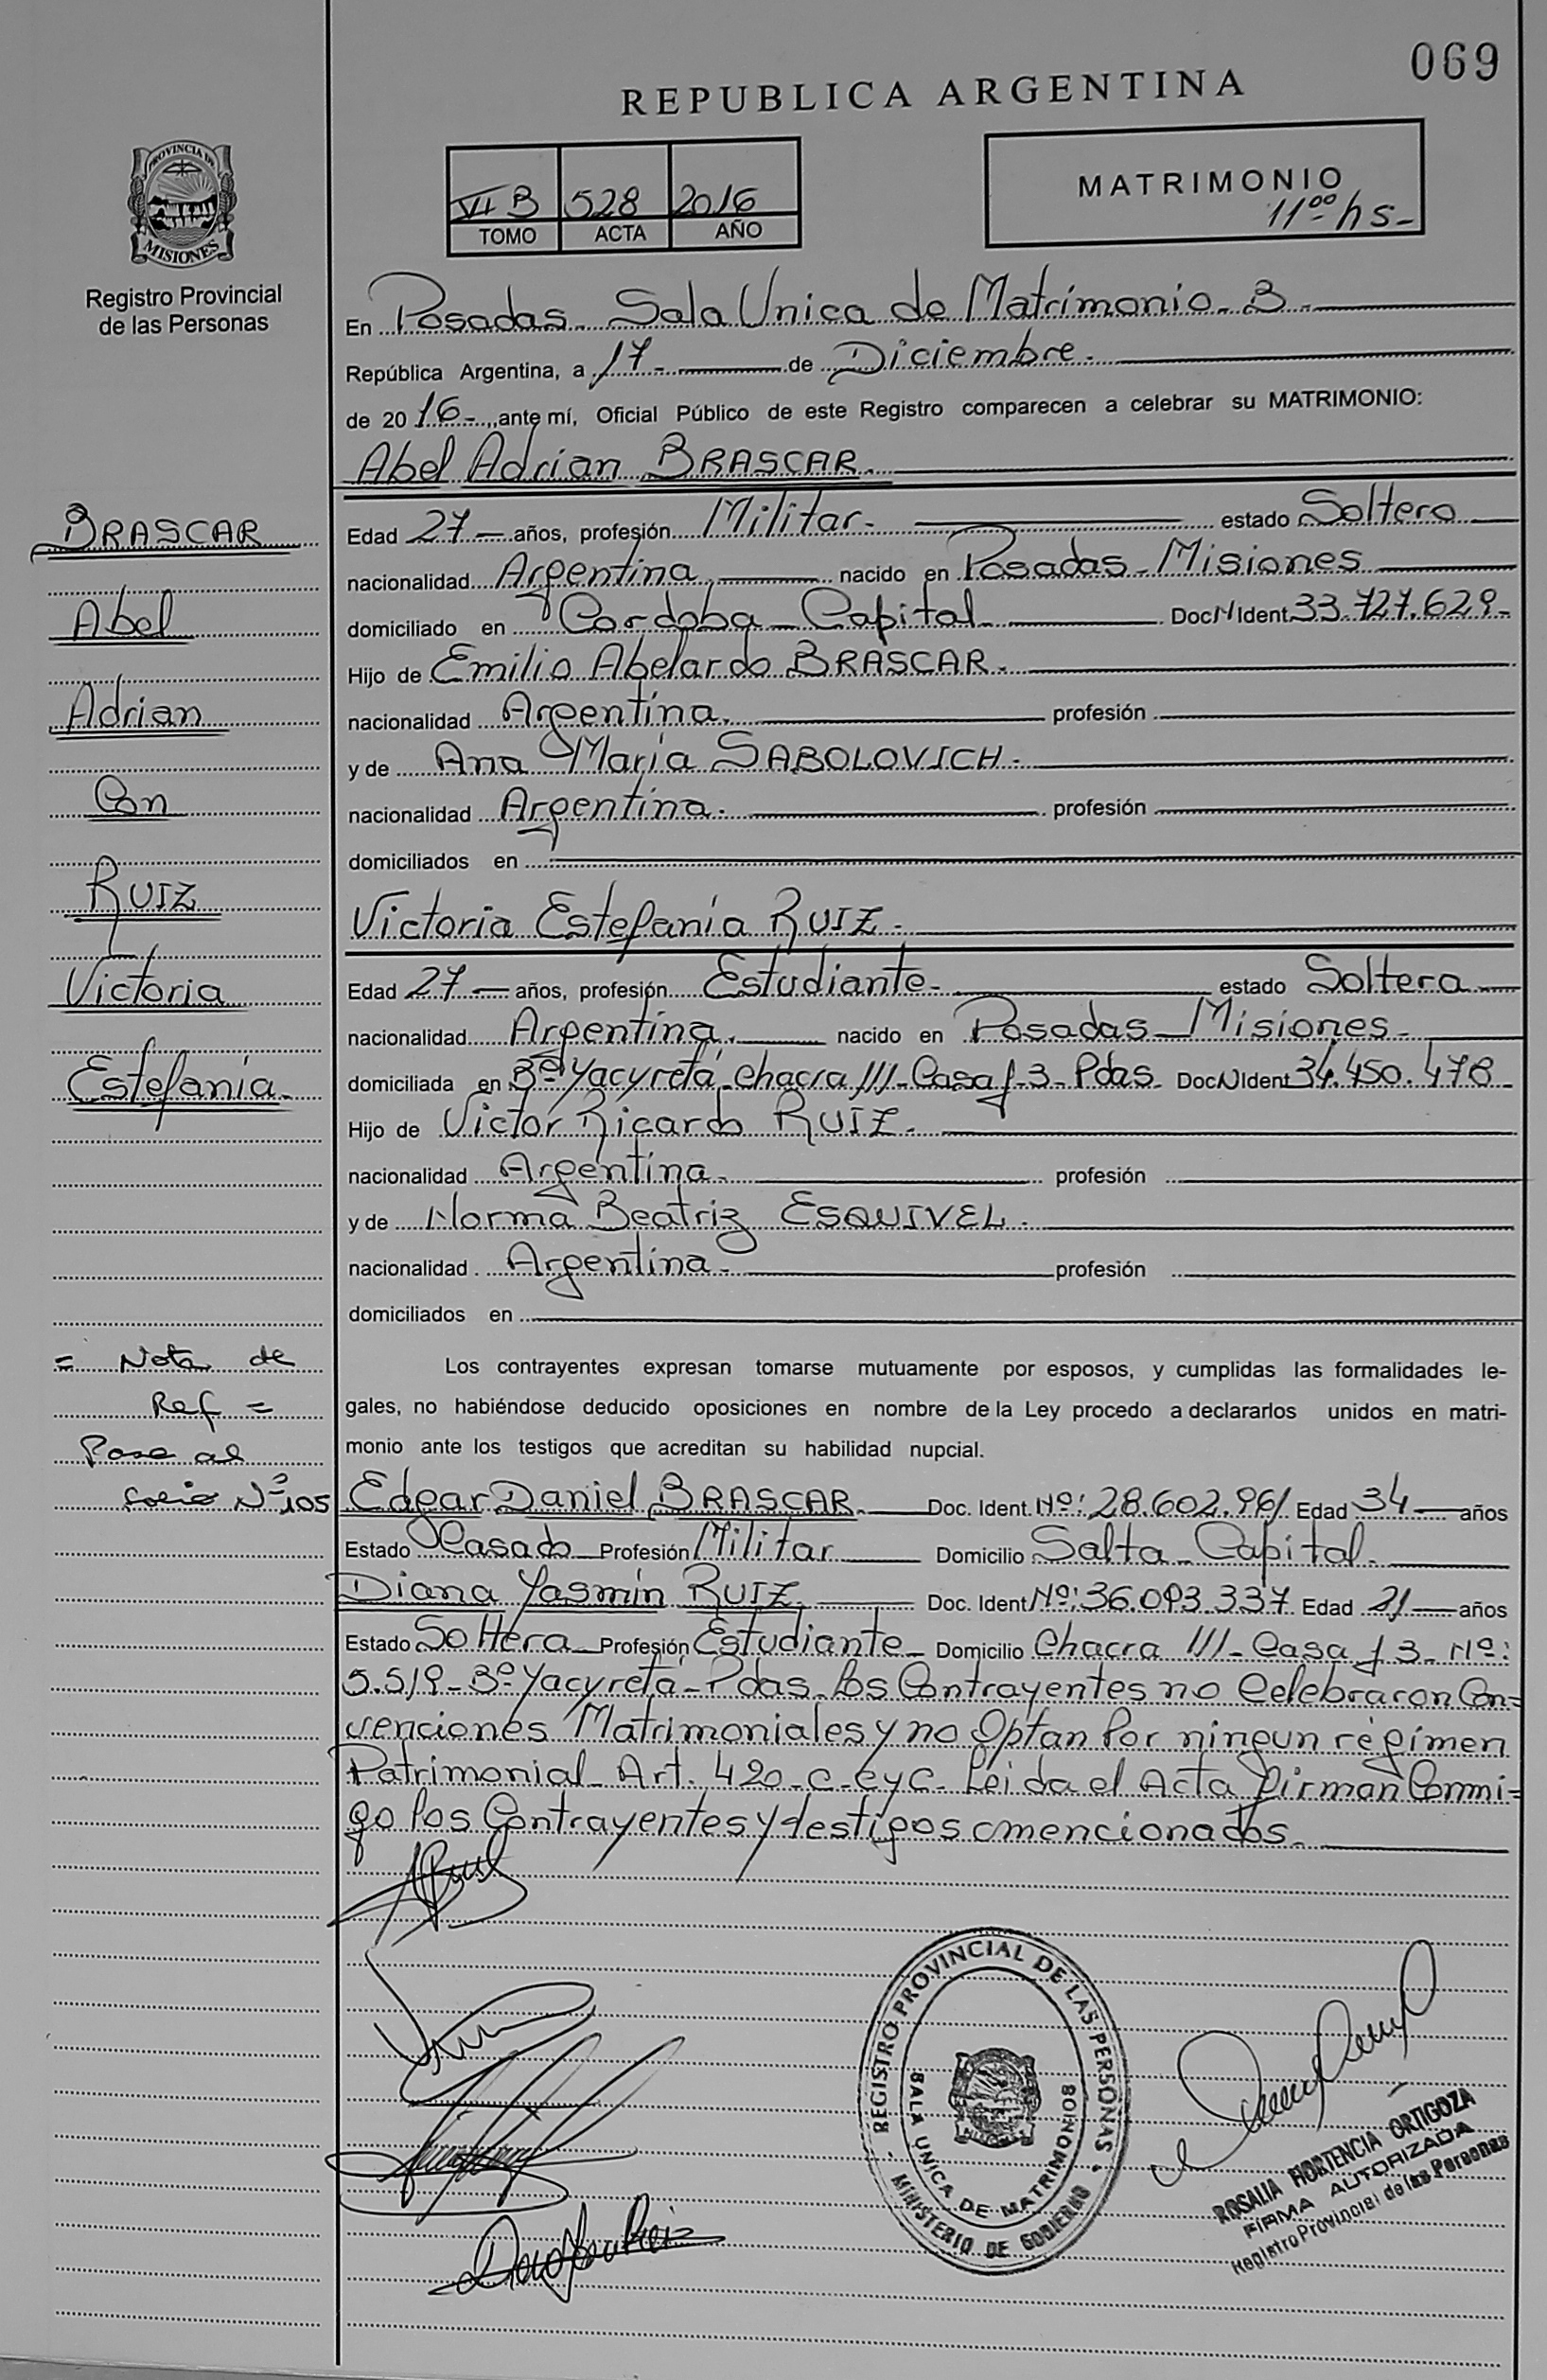 069
REPUBLICA ARGENTINA
PROVINCIA DE
MISIONES
Registro Provincial
de las Personas
VI B 528 2016
TOMO ACTA AÑO
MATRIMONIO
11⁰⁰ hs-
En Posadas. Sala Unica de Matrimonio. B.
República Argentina, a 17- de Diciembre.
de 20 16-, ante mí, Oficial Público de este Registro comparecen a celebrar su MATRIMONIO:
Abel Adrian BRASCAR.
BRASCAR
Abel
Adrian
Con
RUIZ
Victoria
Estefanía.
Edad 27 años, profesión Militar. estado Soltero
nacionalidad Argentina. nacido en Posadas - Misiones
domiciliado en Cordoba - Capital. Doc N Ident 33.727.629-
Hijo de Emilio Abelardo BRASCAR.
nacionalidad Argentina. profesión
y de Ana María SABOLOVICH.
nacionalidad Argentina. profesión
domiciliados en
Victoria Estefanía RUIZ.
Edad 27 años, profesión Estudiante- estado Soltera
nacionalidad Argentina. nacido en Posadas - Misiones-
domiciliada en Bº Yacyretá - Chacra 111 - Casa 13- Pdas. Doc N Ident 34.450.478-
Hijo de Victor Ricardo RUIZ.
nacionalidad Argentina. profesión
y de Norma Beatriz ESQUIVEL.
nacionalidad Argentina- profesión
domiciliados en
= Nota de
Ref =
Pase al
folio Nº 105
Los contrayentes expresan tomarse mutuamente por esposos, y cumplidas las formalidades le-
gales, no habiéndose deducido oposiciones en nombre de la Ley procedo a declararlos unidos en matri-
monio ante los testigos que acreditan su habilidad nupcial.
Edgar Daniel BRASCAR. Doc. Ident. Nº: 28.602.961 Edad 34 años
Estado Casado Profesión Militar Domicilio Salta - Capital.
Diana Yasmín RUIZ. Doc. Ident Nº: 36.093.337 Edad 21 años
Estado Soltera Profesión Estudiante- Domicilio Chacra 111 - Casa 13- Nº:
5.519- Bº Yacyretá - Pdas. Los Contrayentes no Celebraron Con=
venciones Matrimoniales y no Optan Por ningun régimen
Patrimonial - Art. 420 - C. C y C. Leida el Acta firman Conmi=
go los Contrayentes y testigos mencionados.
REGISTRO PROVINCIAL DE LAS PERSONAS
SALA UNICA DE MATRIMONIOS
MINISTERIO DE GOBIERNO
ROSALIA HORTENCIA ORTIGOZA
FIRMA AUTORIZADA
Registro Provincial de las Personas